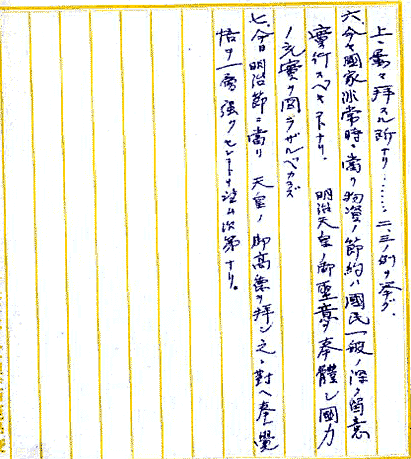 上ニ最モ拝スル所ナリ……二、三ノ例ヲ挙グ.
六、今ヤ國家非常時ニ當リ物資ノ節約ハ國民一般ノ深ク留意
實行スベキコトナリ. 明治天皇ノ御聖意ヲ奉體シ國力
ノ充實ヲ図ラザルベカラズ
七、今日明治節ニ當リ 天皇ノ御高德ヲ拝シ之ニ對ヘ奉ル覺
悟ヲ一層強クセンコトヲ望ム次第ナリ。